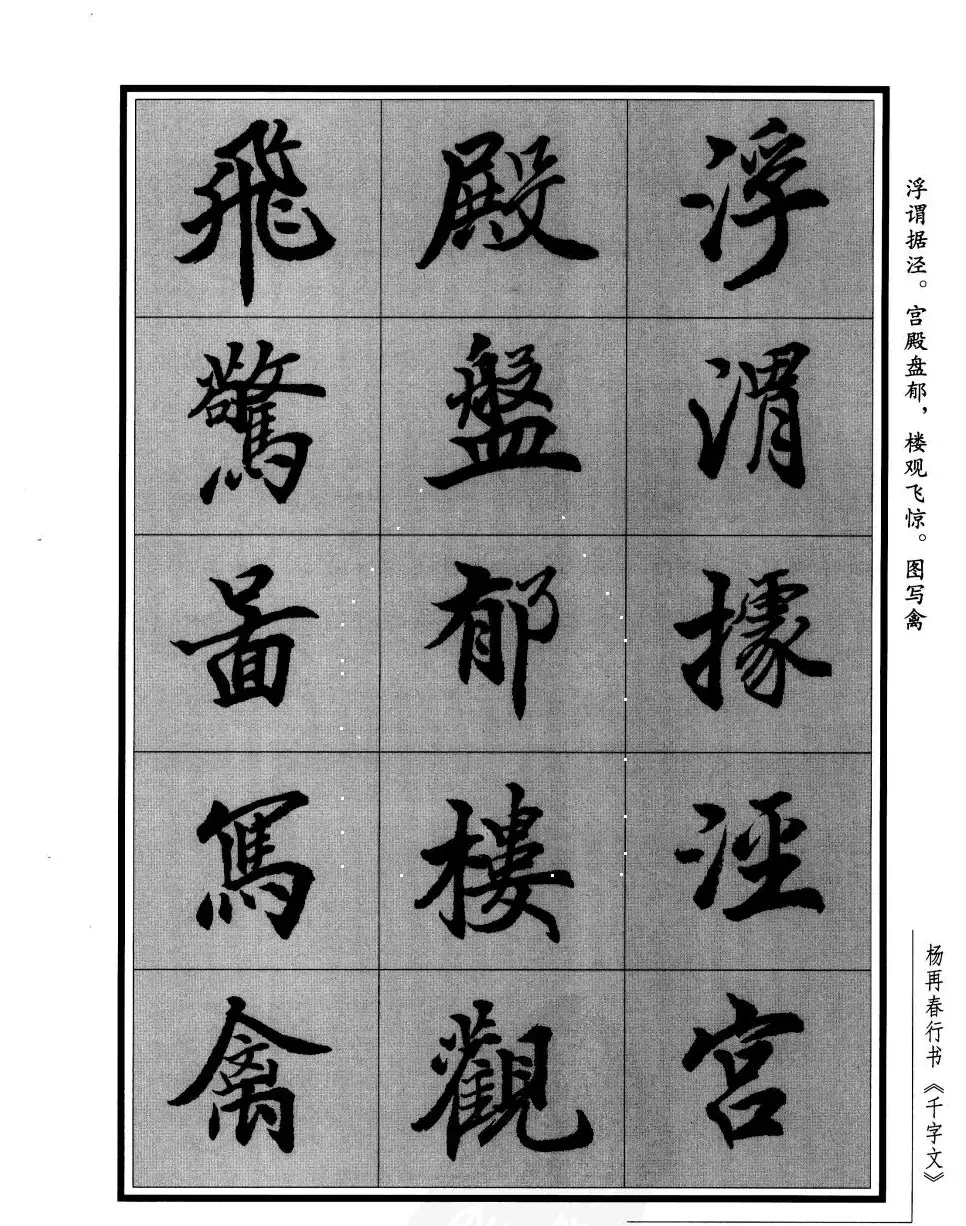 浮渭據涇宮
殿盤郁樓觀
飛驚圖寫禽
浮谓据泾。宫殿盘郁，楼观飞惊。图写禽
杨再春行书《千字文》